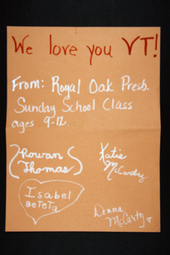 We love you VT!
From: Royal Oak Presb.
Sunday School Class
ages 9-12
Rowan Thomas
Katie McCarthy
Isabel
Donna McCarty